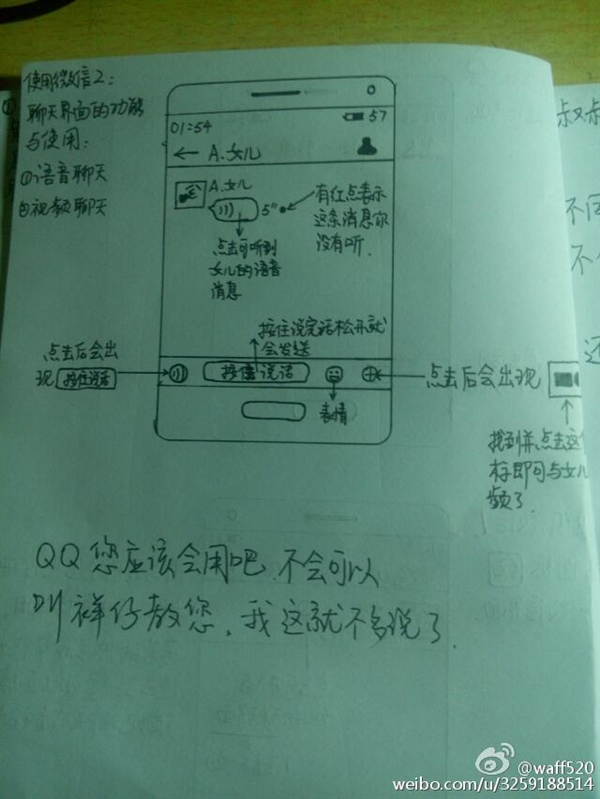 使用微信2:
聊天界面的功能
与使用:
①语音聊天
②视频聊天
57
01:54
← A.女儿
A.女儿
5"
有红点表示
这条消息你
没有听.
点击可听到
女儿的语音
消息
按住说完话松开就
会发送
点击后会出
现 按住说话
按住说话
表情
点击后会出现
找到并点击这
标即可与女儿
频了
QQ您应该会用吧.不会可以
叫祥仔教您,我这就不多说了.
叔叔
不
不
还
@waff520
weibo.com/u/3259188514